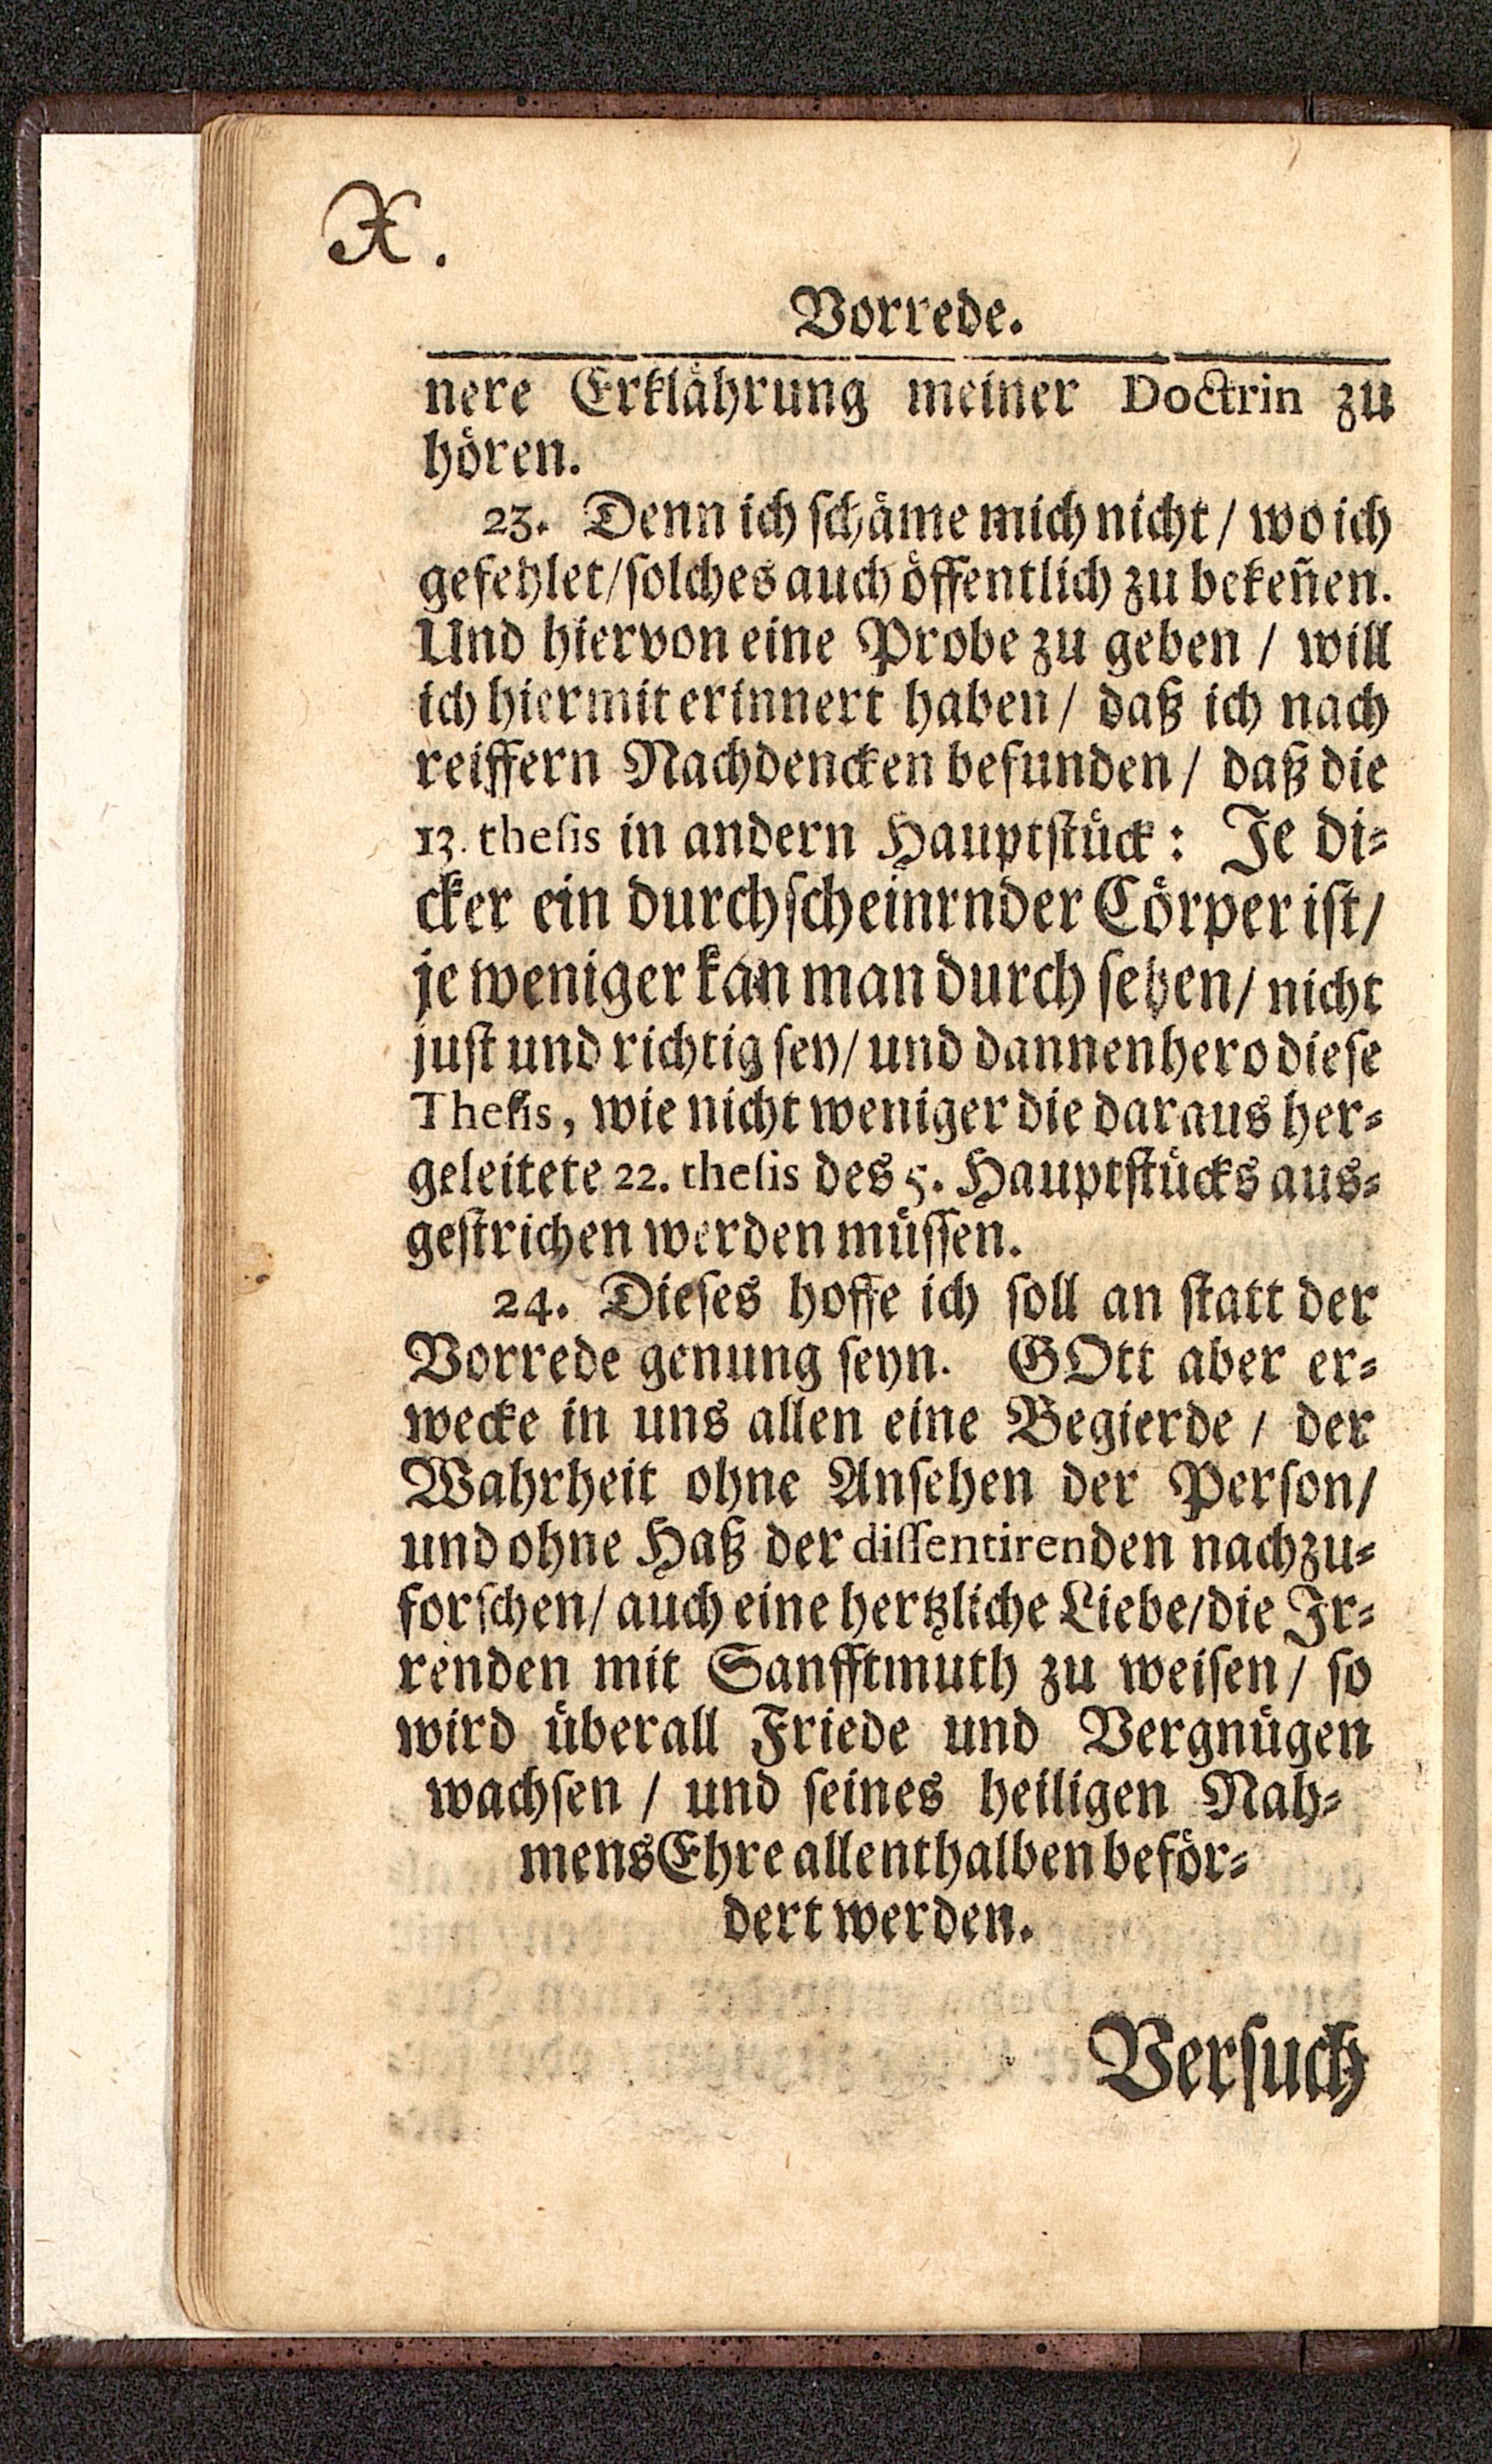 X.
Vorrede.
nere Erklährung meiner Doctrin zu
hören.
23. Denn ich schäme mich nicht / wo ich
gefehlet / solches auch öffentlich zu bekeñen.
Und hiervon eine Probe zu geben / will
ich hiermit erinnert haben / daß ich nach
reiffern Nachdencken befunden / daß die
13. thesis in andern Hauptstück: Je di-
cker ein durchscheinrnder Cörper ist /
je weniger kan man durch sehen / nicht
just und richtig sey / und dannenhero diese
Thesis, wie nicht weniger die daraus her-
geleitete 22. thesis des 5. Hauptstücks aus-
gestrichen werden müssen.
24. Dieses hoffe ich soll an statt der
Vorrede genung seyn. GOtt aber er-
wecke in uns allen eine Begierde / der
Wahrheit ohne Ansehen der Person /
und ohne Haß der dissentirenden nachzu-
forschen / auch eine hertzliche Liebe / die Ir-
renden mit Sanfftmuth zu weisen / so
wird überall Friede und Vergnügen
wachsen / und seines heiligen Nah-
mens Ehre allenthalben beför-
dert werden.
Versuch